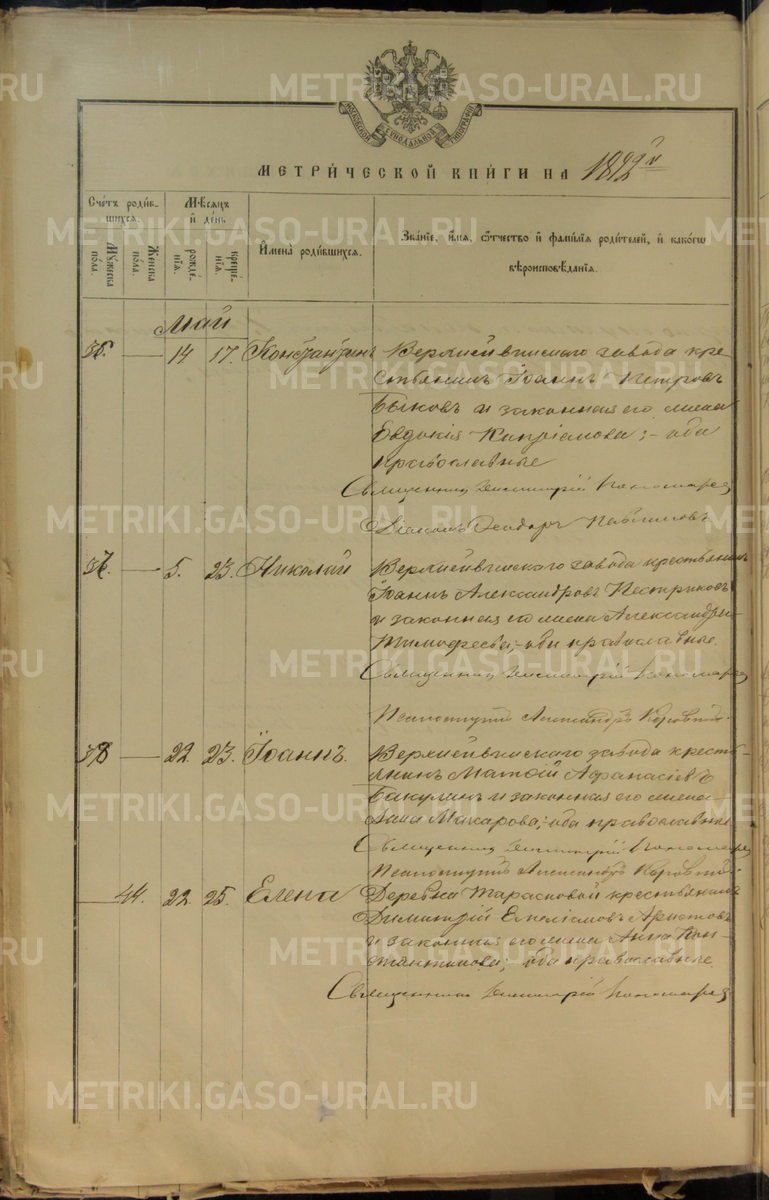 МОСКОВСКОЙ СѴНОДАЛЬНОЙ ТИПОГРАФІИ
МЕТРИ́ЧЕСКОЙ КНИ́ГИ НА 1892й
Сче́тъ роди́вшихсѧ.
Мѹ́жеска по́ла.
Же́нска по́ла.
Мѣ́сѧцъ и҆ де́нь
рожде́нїѧ.
креще́нїѧ.
И҆мена̀ роди́вшихсѧ.
Зва́нїе, и҆́мѧ, ѻ҆́тчество и҆ фами́лїѧ роди́телей, и҆ како́гѡ
вѣроисповѣ́данїѧ.
Май
36. — 14 17. Константинъ Верхисетскаго завода кре-
стьянинъ Іоаннъ Петровъ
Быковъ и законная его жена
Евдокія Кипріанова; – оба
православные
Священникъ Димитрій Пономаревъ
Діаконъ Ѳеодоръ
37. — 5. 23. Николай завода крестьянинъ
Іоаннъ Александровъ Пестриковъ
и законная его жена Александра
Тимофеева; – оба православные.
Священникъ Димитрій Пономаревъ
Псаломщикъ Александръ
38 — 22 23. Іоаннъ. завода кресть-
янинъ Матѳій Аѳанасіевъ
Бакулинъ и законная его жена
Анна Макарова; оба православные
Священникъ Димитрій Пономаревъ
Псаломщикъ Александръ
— 44. 22 25. Елена Деревни Тарасковой крестьянинъ
Димитрій Емеліановъ Аристовъ
и законная его жена Анна Кон-
стантинова; оба православные
Священникъ Димитрій Пономаревъ
METRIKI.GASO-URAL.RU